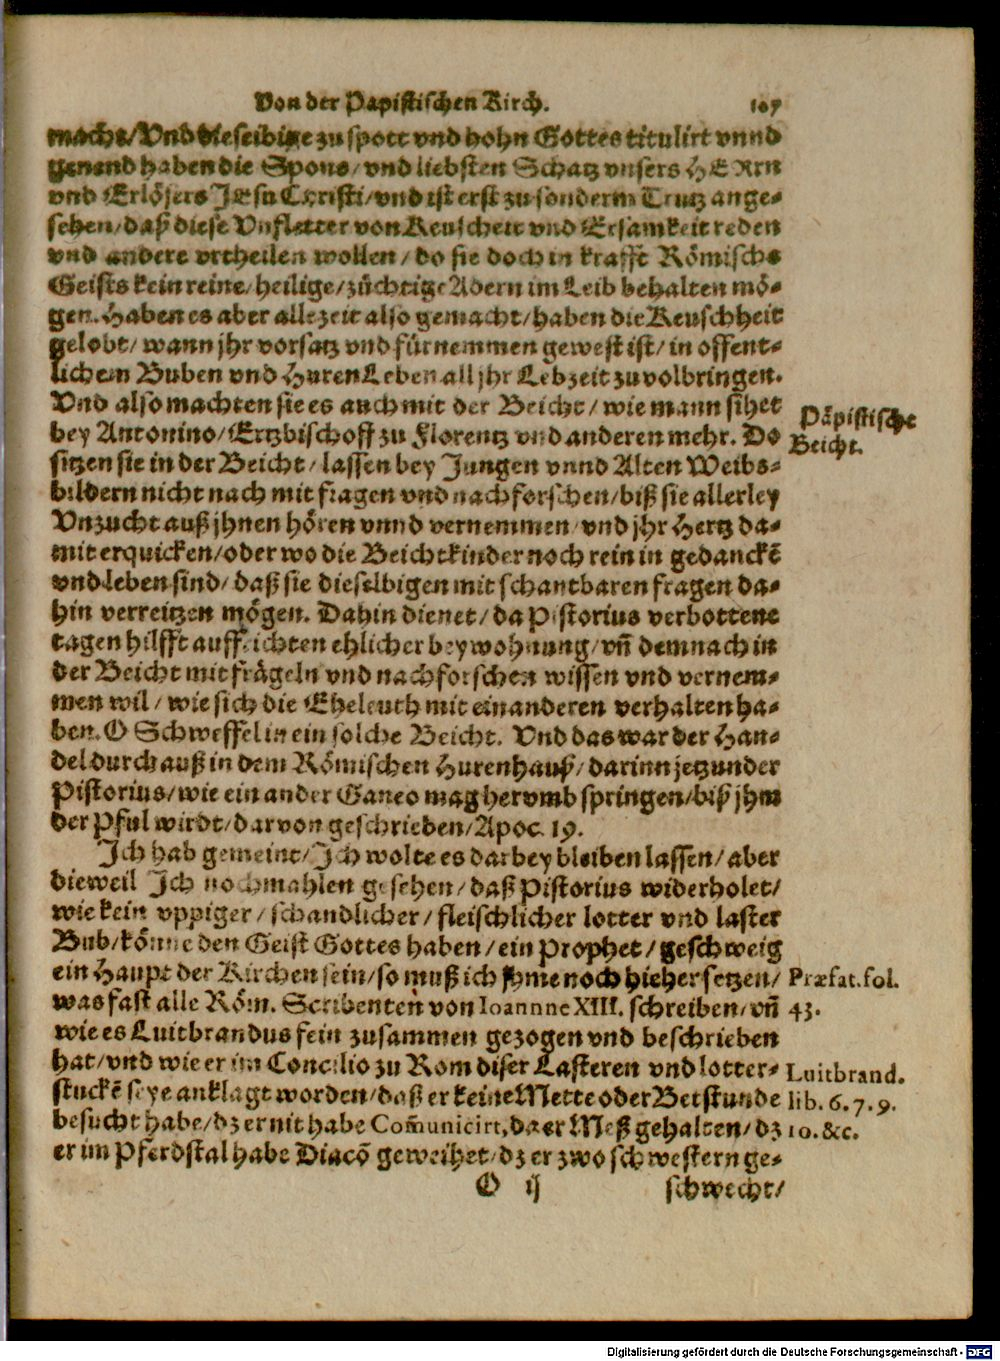 Von der Papistischen Kirch. 107
macht/Vnd dieselbige zu spott vnd hohn Gottes titulirt vnnd
genend haben die Spons/vnd liebsten Schatz vnsers HERrn
vnd Erlösers JEsu Christi/vnd ist erst zu sonderm Trutz ange-
sehen/daß diese Vnfletter von Keuscheit vnd Ersamkeit reden
vnd andere vrtheilen wollen/do sie doch in krafft Römischs
Geists kein reine/heilige/züchtige Adern im Leib behalten mö-
gen. Haben es aber allezeit also gemacht/haben die Keuschheit
gelobt/wann jhr vorsatz vnd fürnemmen gewest ist/in offent-
lichem Buben vnd Huren Leben all jhr Lebzeit zu volbringen.
Vnd also machten sie es auch mit der Beicht/wie mann sihet
Päpistische
Beicht.
bey Antonino/Ertzbischoff zu Florentz vnd anderen mehr. Do
sitzen sie in der Beicht/lassen bey Jungen vnnd Alten Weibs-
bildern nicht nach mit fragen vnd nachforschen/biß sie allerley
Vnzucht auß jhnen hören vnnd vernemmen/vnd jhr Hertz da-
mit erquicken/oder wo die Beichtkinder noch rein in gedanckē
vnd leben sind/daß sie dieselbigen mit schantbaren fragen da-
hin verreitzen mögen. Dahin dienet/da Pistorius verbottene
tagen hilfft auffrichten ehlicher beywohnung/vñ demnach in
der Beicht mit frägeln vnd nachforschen wissen vnd vernem-
men wil/wie sich die Eheleuth mit einanderen verhalten ha-
ben. O Schweffel in ein solche Beicht. Vnd das war der Han-
del durch auß in dem Römischen Hurenhauß/darinn jetzunder
Pistorius/wie ein ander Ganeo mag hervmb springen/biß jhm
der Pful wirdt/darvon geschrieben/Apoc. 19.
Ich hab gemeint/Ich wolte es darbey bleiben lassen/aber
dieweil Ich nochmahlen gesehen/daß Pistorius widerholet/
wie kein vppiger/schandlicher/fleischlicher lotter vnd laster
Bub/könne den Geist Gottes haben/ein Prophet/geschweig
ein Haupt der Kirchen sein/so muß ich jhme noch hieher setzen/
Præfat. fol.
43.
was fast alle Röm. Scribenten von Ioannne XIII. schreiben/vñ
wie es Luitbrandus fein zusammen gezogen vnd beschrieben
hat/vnd wie er im Concilio zu Rom diser Lasteren vnd lotter-
Luitbrand.
lib. 6. 7. 9.
10. &c.
stuckē seye anklagt worden/daß er keine Mette oder Betstunde
besucht habe/dz er nit habe Com̃unicirt, da er Meß gehalten/dz
er im Pferdstal habe Diacō geweihet/dz er zwo schwestern ge-
O ij schwecht/
Digitalisierung gefördert durch die Deutsche Forschungsgemeinschaft - DFG